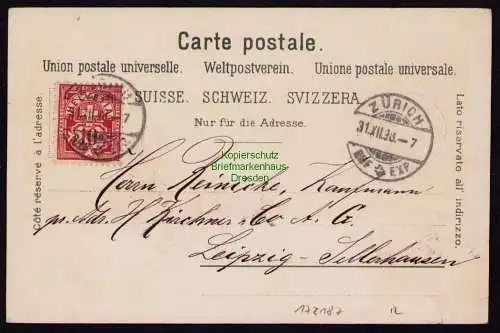 Carte postale.
Union postale universelle. Weltpostverein. Unione postale universale.
SUISSE. SCHWEIZ. SVIZZERA.
Nur für die Adresse.
Côté réservé à l'adresse.
Lato riservato all' indirizzo.
HELVETIA
10
7
ZÜRICH
31.XII.98.-7
EXP.
Kopierschutz
Briefmarkenhaus
Dresden
Herrn Reinicke, Kaufmann
p. Adr. H. Kirchner & Co A. G.
Leipzig-Sellerhausen
172187